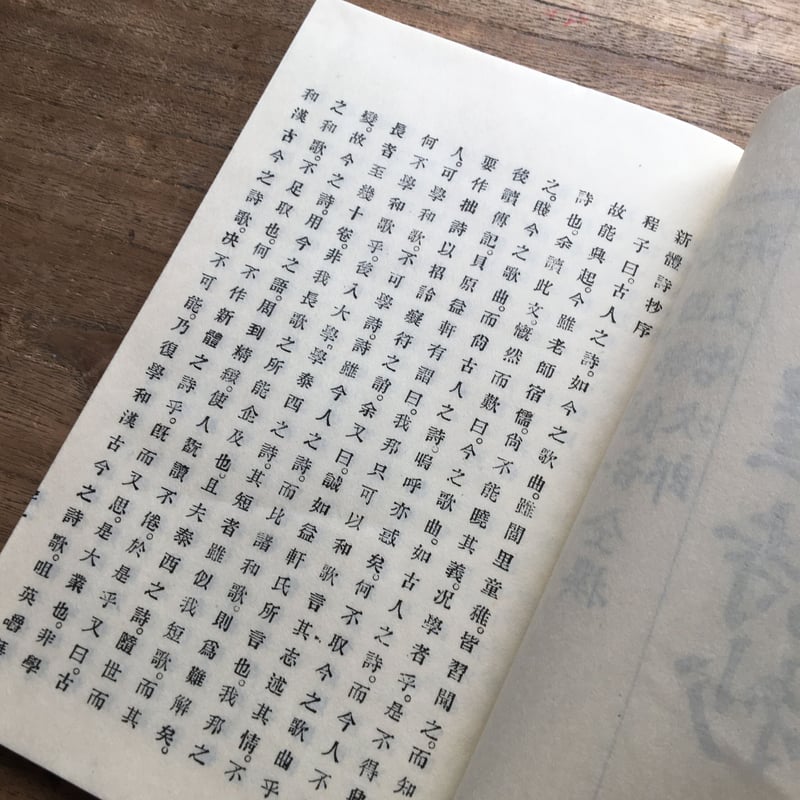 新體詩抄序
程子曰。古人之詩。如今之歌曲。雖閭里童稚。皆習聞之。而知
故能興起。今雖老師宿儒。尚不能曉其義。況學者乎。是不得興
詩也。余讀此文。慨然而歎曰。今之歌曲。如古人之詩。而今人不
之。賤今之歌曲。而尚古人之詩。嗚呼亦惑矣。何不取今之歌曲乎
後讀傳記。貝原益軒有謂曰。我邦只可以和歌言其志述其情。不
要作拙詩以招詅癡符之誚。余又曰。誠如益軒氏所言也。我邦之
人。可學和歌。不可學詩。詩雖今人之詩。而比諸和歌。則爲難解矣。
何不學和歌乎。後入大學。學泰西之詩。其短者雖似我短歌。而其
長者至幾十卷。非我長歌之所能企及也。且夫泰西之詩。隨世而
變。故今之詩。用今之語。周到精緻。使人翫讀不倦。於是乎又曰。古
之和歌。不足取也。何不作新體之詩乎。既而又思。是大業也。非學
和漢古今之詩歌。決不可能。乃復學和漢古今之詩歌。咀英嚼華